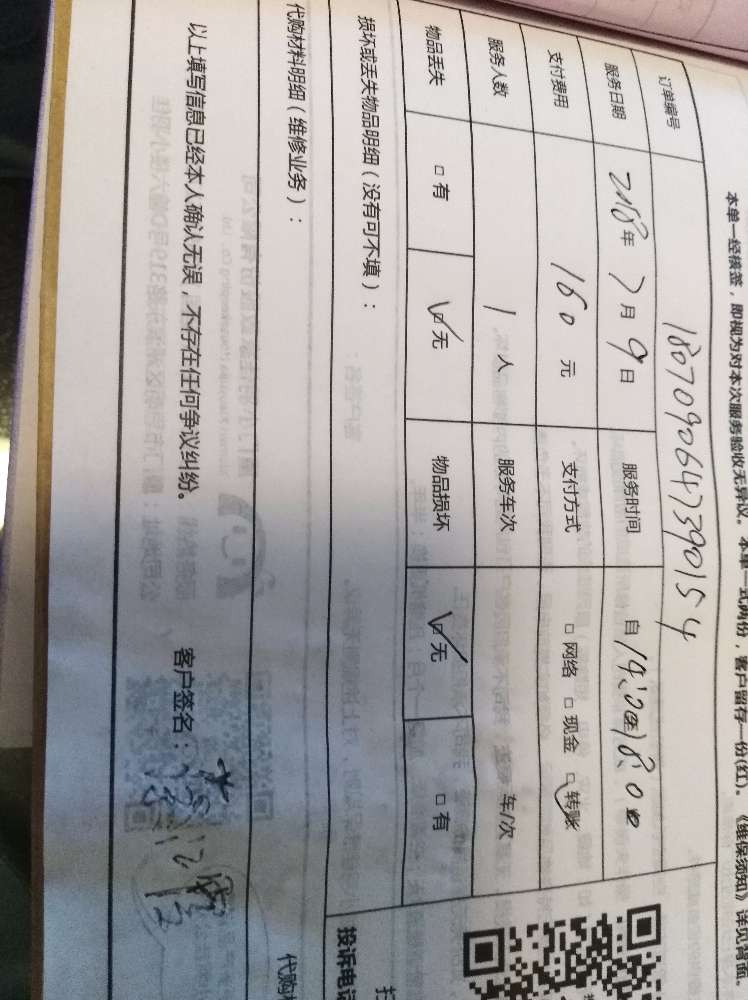 本单一经核签，即视为对本次服务验收无异议。本单一式两份，客户留存一份(红)。《维保须知》详见背面。
订单编号 1807090647390154
服务日期 2018年7月9日 服务时间 自14:00至18:00
支付费用 160元 支付方式 □网络 □现金 ☑转账
服务人数 1人 服务车次 车/次
物品丢失 □有 ☑无 物品损坏 ☑无 □有
损坏或丢失物品明细（没有可不填）：
代购材料明细（维修业务）：
以上填写信息已经本人确认无误，不存在任何争议纠纷。 客户签名：
投诉电话
代购材